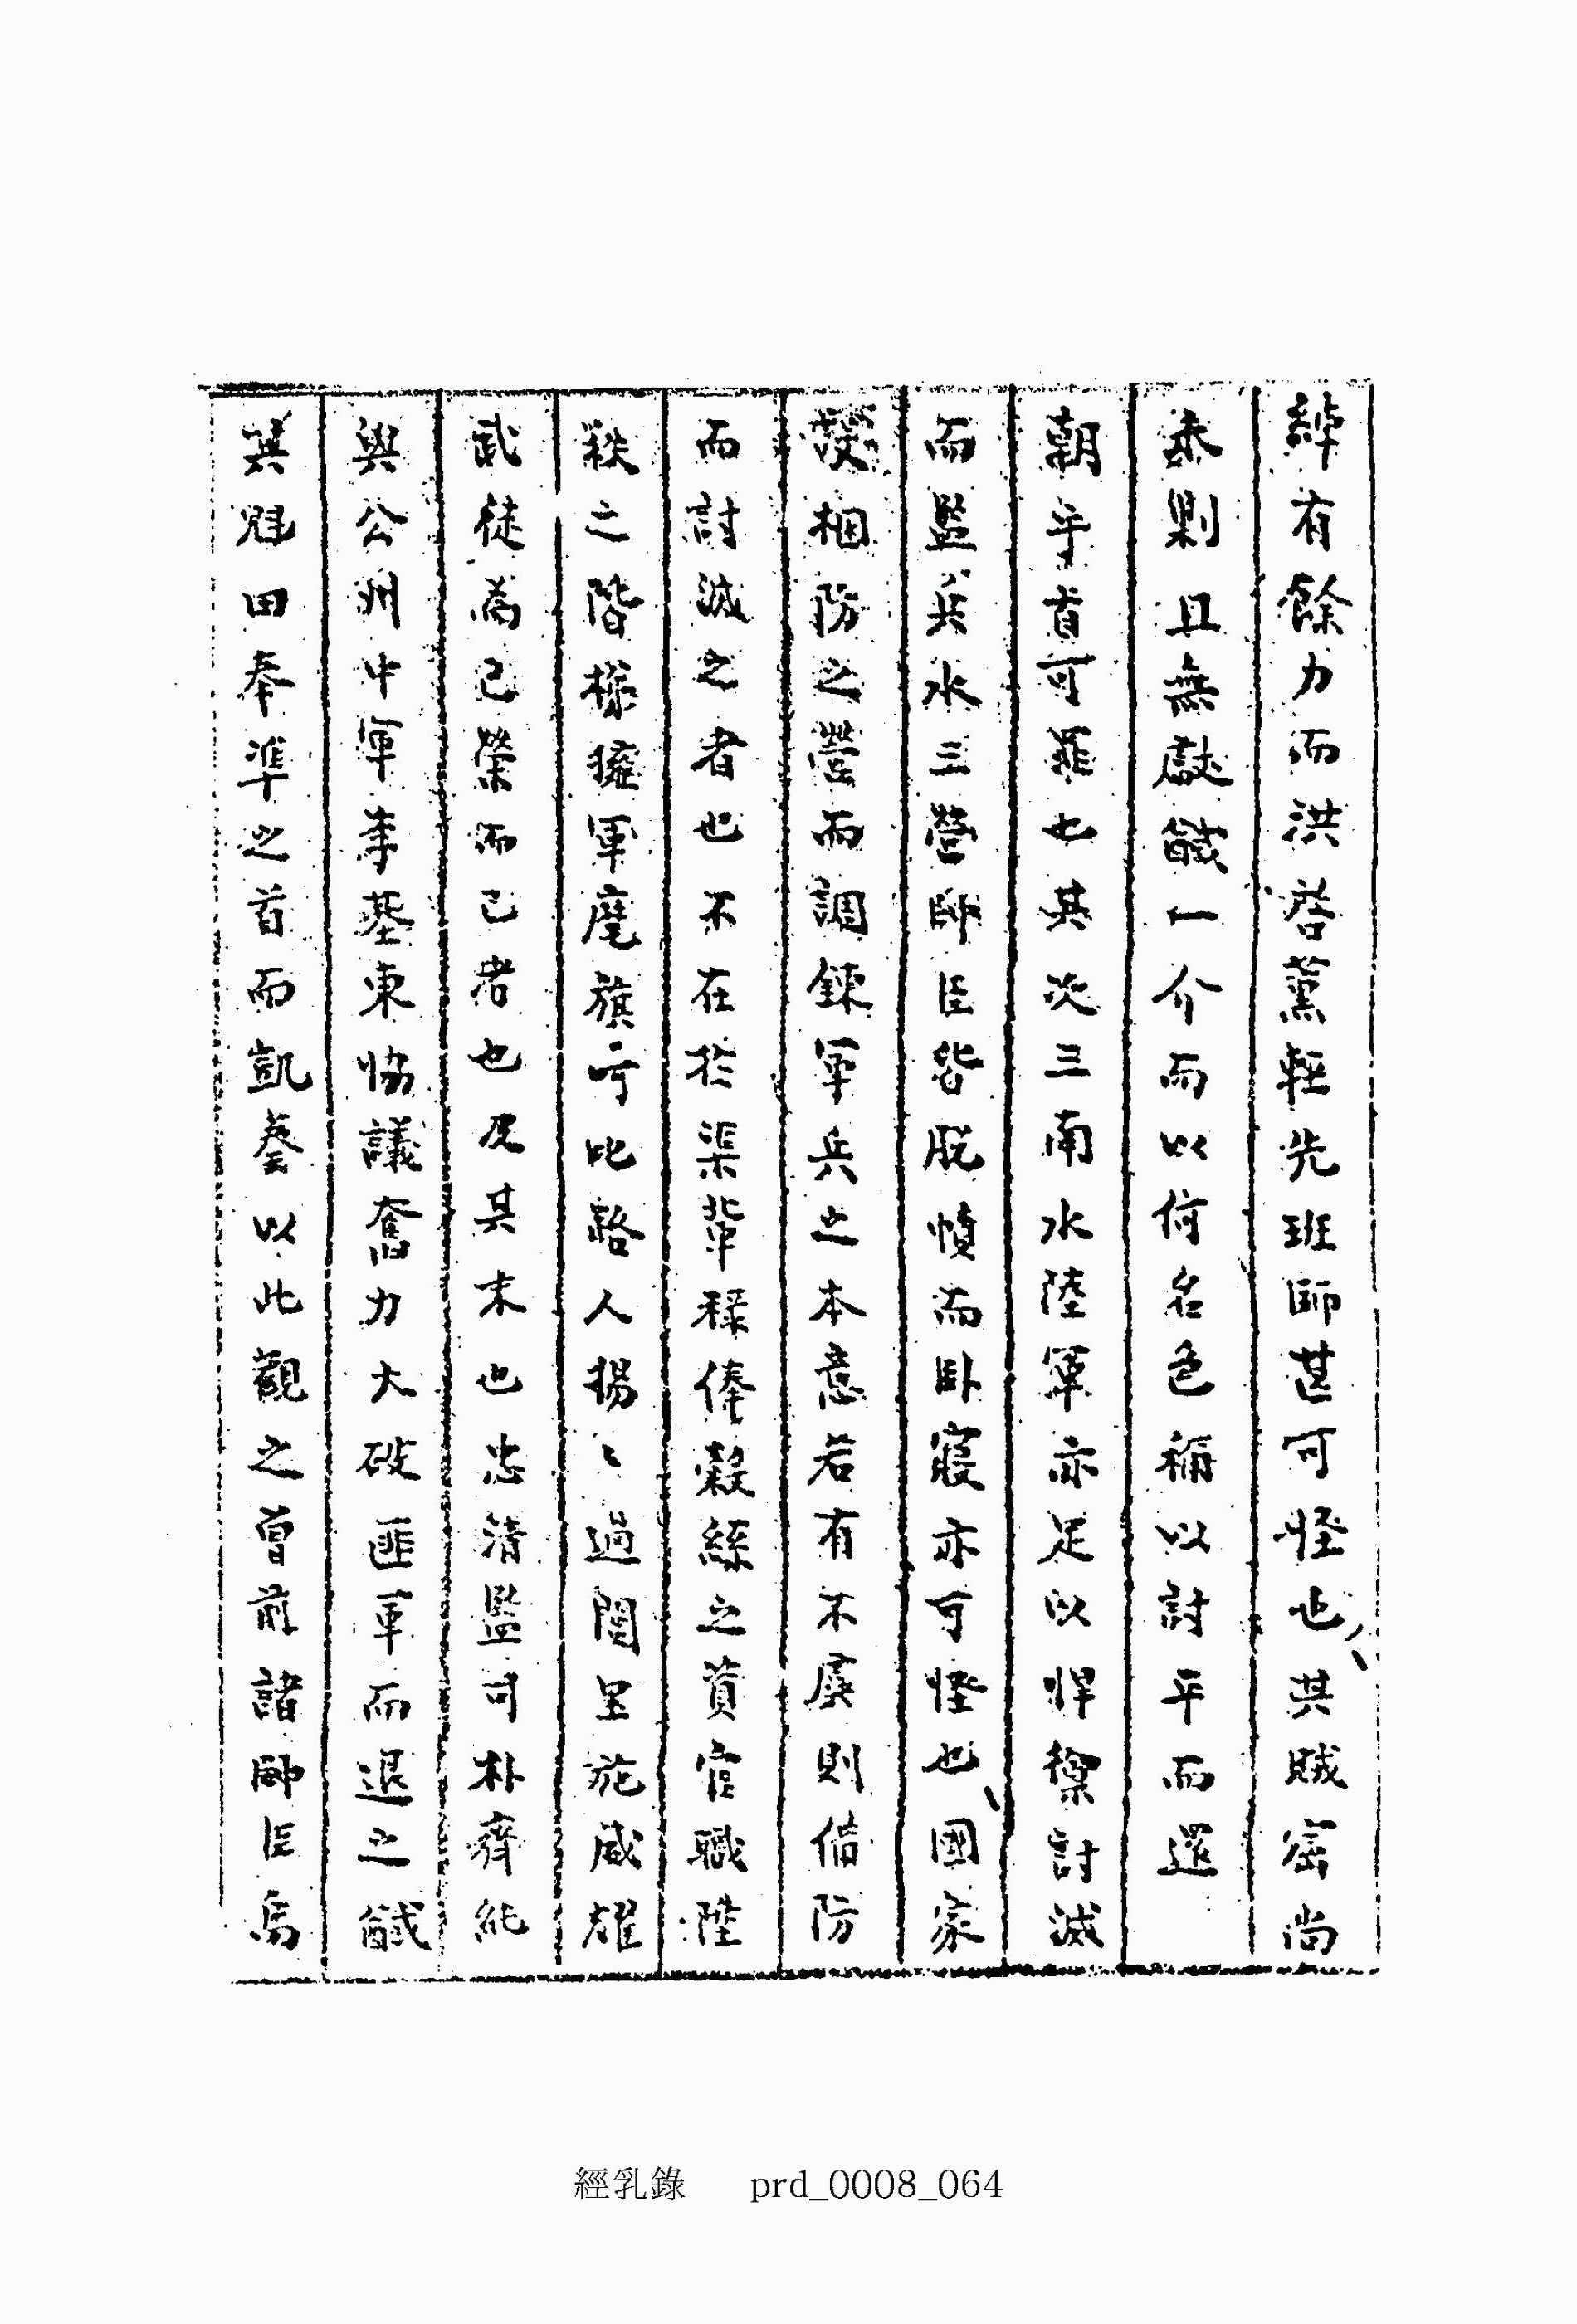 綽有餘力而洪啓薰輕先班師甚可怪也其賊窟尚
未剿且無獻馘一介而以何名色稱以討平而還
朝乎首可罪也其次三南水陸軍亦足以悍禦討滅
而監兵水三營帥臣皆脫憤而臥寢亦可怪也國家
設相防之營而調鍊軍兵之本意若有不虞則備防
而討滅之者也不在於渠輩祿俸穀絲之資官職陞
秩之階樣擁軍麾旗呼叱路人揚〻過閭里施威耀
武徒為己榮而已者也及其末也忠清監司朴齊純
與公州中軍李基東協議奮力大破匪軍而退之馘
其魁田奉準之首而凱奏以此觀之曾前諸帥臣焉
經乳錄 prd_0008_064